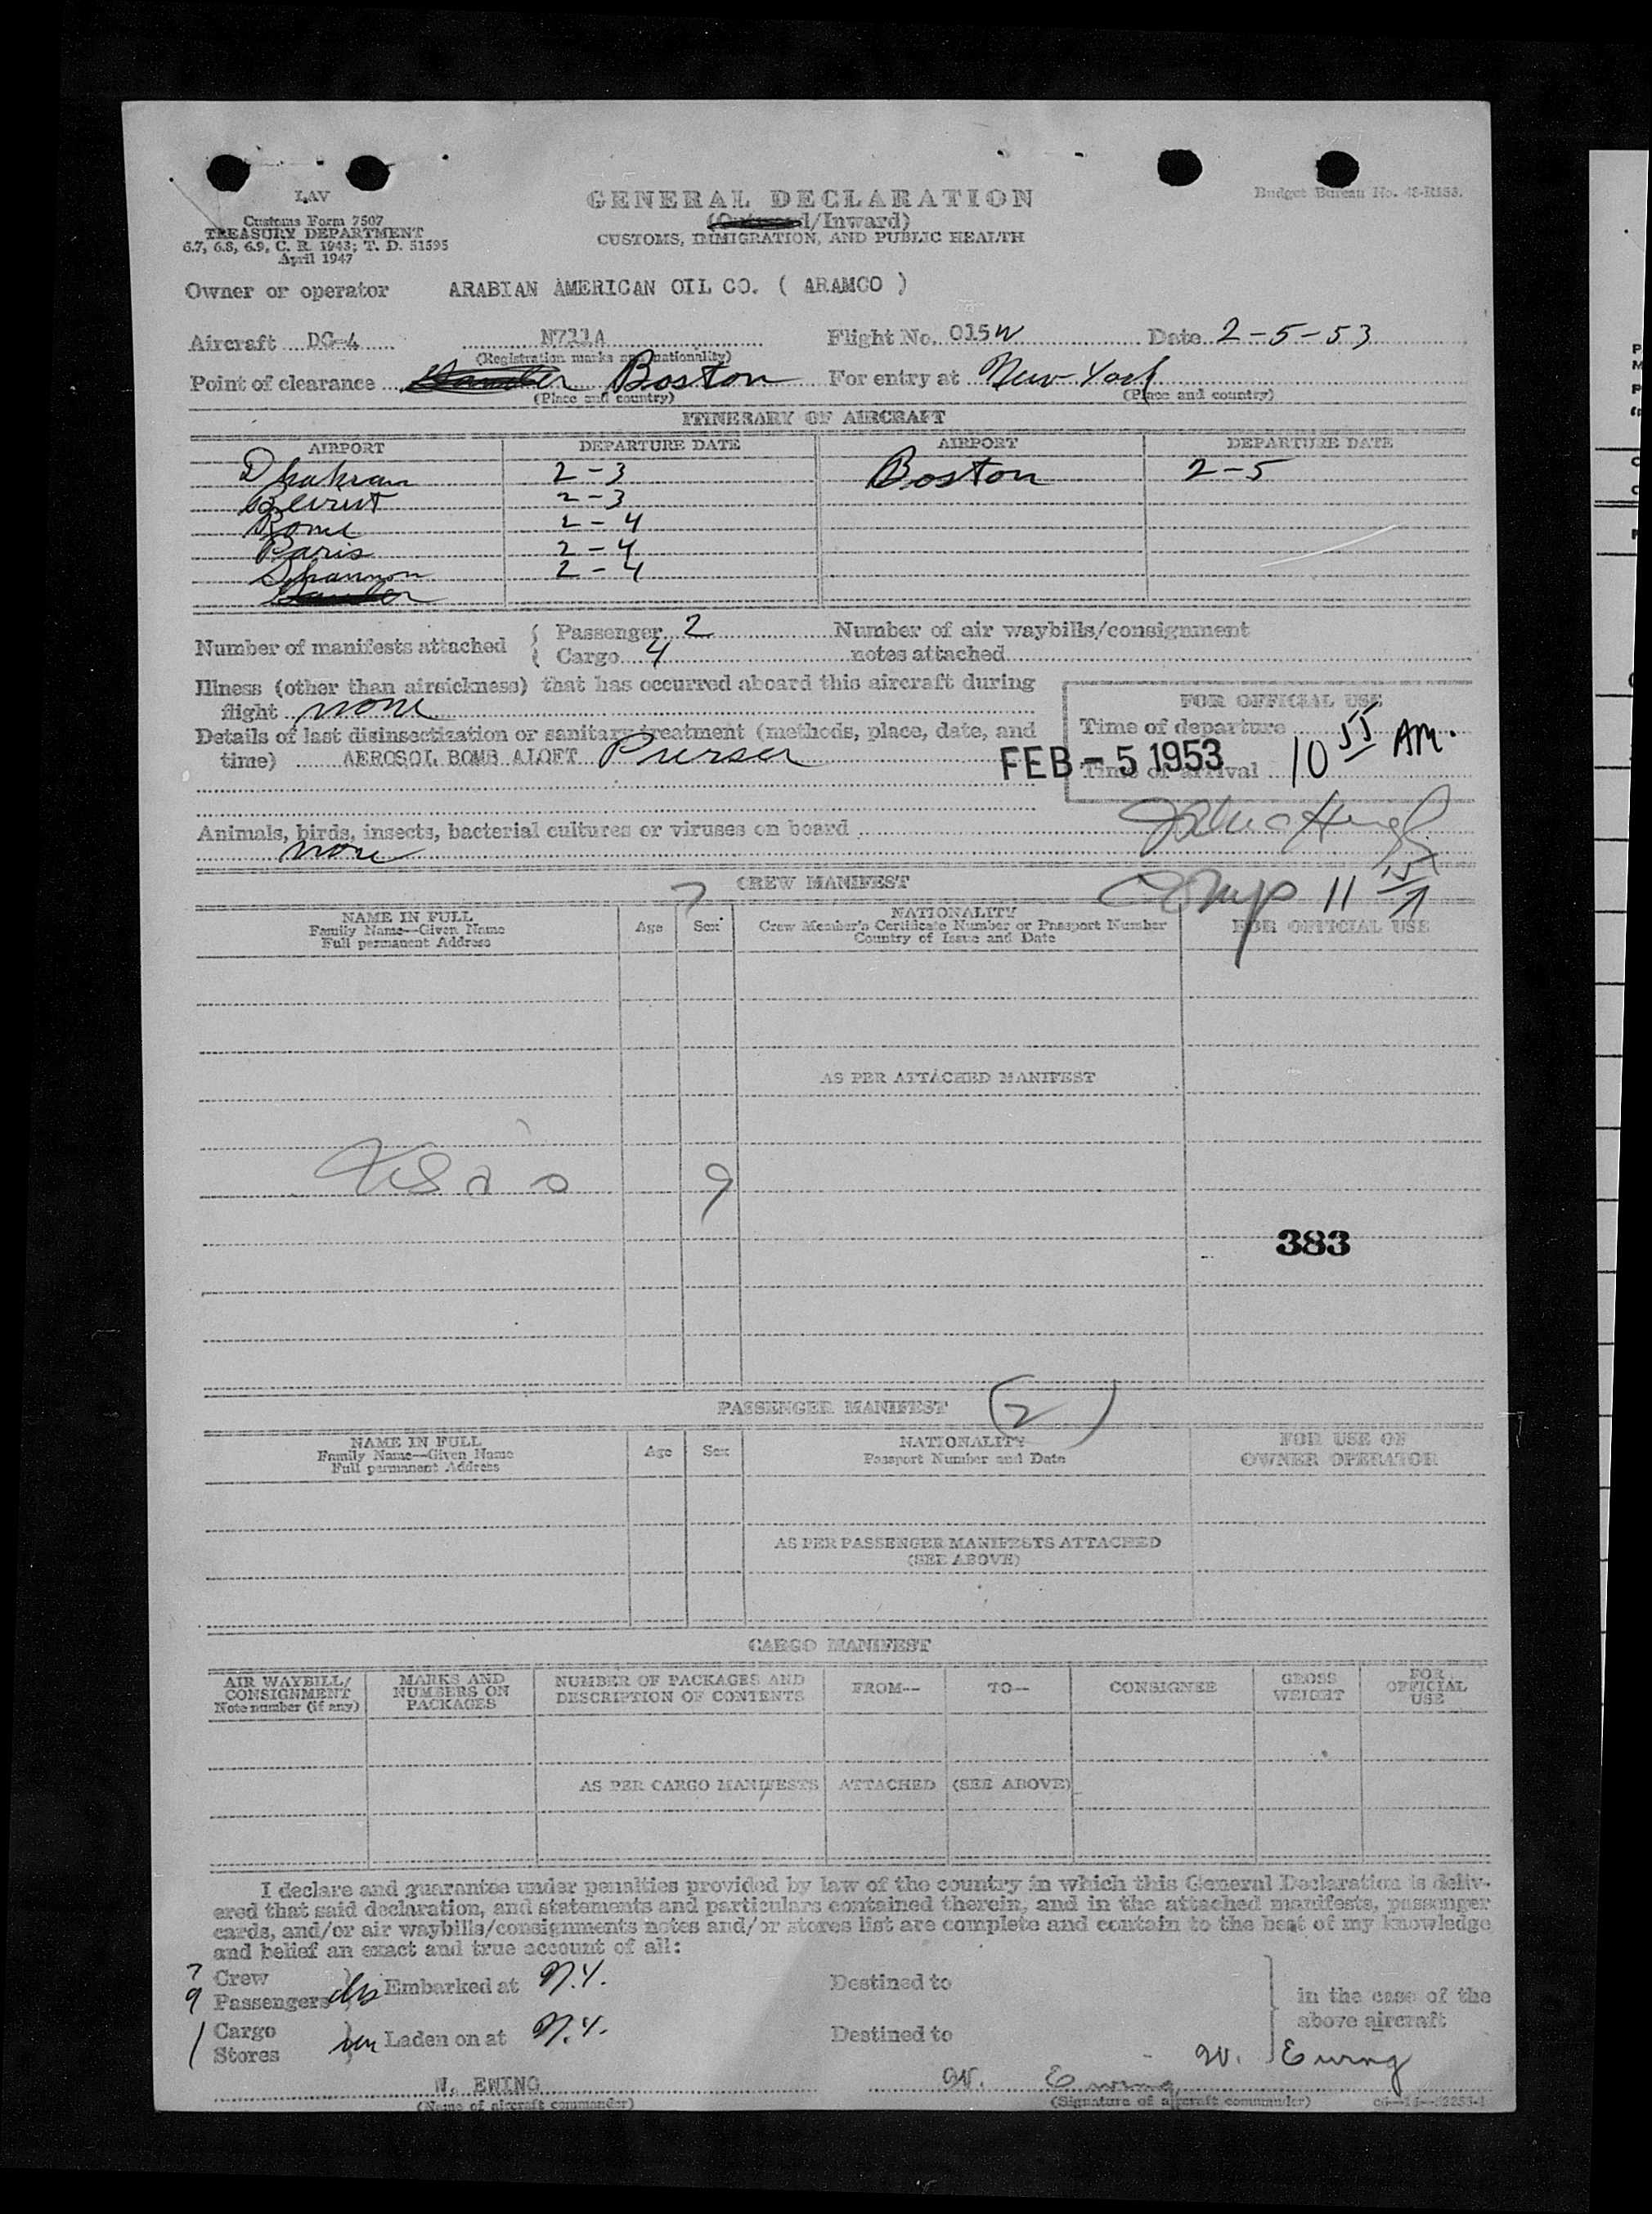 LAV
Customs Form 7507
TREASURY DEPARTMENT
6.7, 6.8, 6.9, C. R. 1943; T. D. 51595
April 1947
GENERAL DECLARATION
/Inward)
CUSTOMS, IMMIGRATION, AND PUBLIC HEALTH
Budget Bureau No. 48-R153.
Owner or operator ARABIAN AMERICAN OIL CO. ( ARAMCO )
Aircraft DC-4 N711A Flight No. 015W Date 2-5-53
(Registration marks and nationality)
Point of clearance Boston For entry at New York
(Place and country) (Place and country)
ITINERARY OF AIRCRAFT
AIRPORT DEPARTURE DATE AIRPORT DEPARTURE DATE
Dhahran 2-3 Boston 2-5
Beirut 2-3
Rome 2-4
Paris 2-4
Shannon 2-4
Number of manifests attached { Passenger 2 Number of air waybills/consignment
Cargo 4 notes attached
Illness (other than airsickness) that has occurred aboard this aircraft during
flight none
Details of last disinsectization or sanitary treatment (methods, place, date, and
time) AEROSOL BOMB ALOFT Purser
FOR OFFICIAL USE
Time of departure
FEB - 5 1953 Time of arrival 10 55 AM.
Animals, birds, insects, bacterial cultures or viruses on board
none
Comp 11 15
7 CREW MANIFEST
NAME IN FULL
Family Name—Given Name
Full permanent Address
Age Sex
NATIONALITY
Crew Member's Certificate Number or Passport Number
Country of Issue and Date
FOR OFFICIAL USE
AS PER ATTACHED MANIFEST
9
383
PASSENGER MANIFEST (2)
NAME IN FULL
Family Name—Given Name
Full permanent Address
Age Sex
NATIONALITY
Passport Number and Date
FOR USE OF
OWNER OPERATOR
AS PER PASSENGER MANIFESTS ATTACHED
(SEE ABOVE)
CARGO MANIFEST
AIR WAYBILL/
CONSIGNMENT
Note number (if any)
MARKS AND
NUMBERS ON
PACKAGES
NUMBER OF PACKAGES AND
DESCRIPTION OF CONTENTS
FROM— TO— CONSIGNEE
GROSS
WEIGHT
FOR
OFFICIAL
USE
AS PER CARGO MANIFESTS ATTACHED (SEE ABOVE)
I declare and guarantee under penalties provided by law of the country in which this General Declaration is deliv-
ered that said declaration, and statements and particulars contained therein, and in the attached manifests, passenger
cards, and/or air waybills/consignments notes and/or stores list are complete and contain to the best of my knowledge
and belief an exact and true account of all:
7 Crew
9 Passengers } dis Embarked at N.Y. Destined to
in the case of the
above aircraft
Cargo
Stores } un Laden on at N.Y. Destined to
W. Ewing
W. EWING W. Ewing
(Name of aircraft commander) (Signature of aircraft commander)